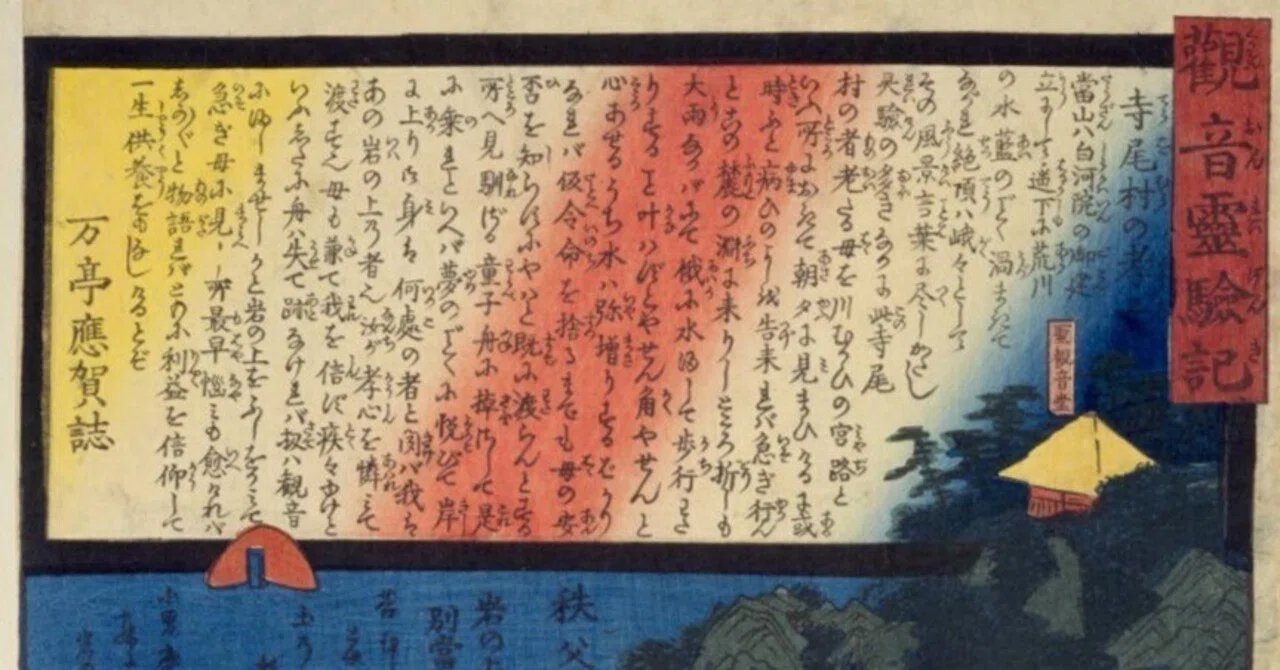 觀音靈驗記
寺尾村の者
當山ハ白河院の御建
立にして遥下に荒川
の水藍のごとく渦まきて
ながれ絶頂ハ峨々として
その風景言葉に尽しがたし
灵驗の多きなかに此寺尾
村の者老たる母を川むかひの宮路と
いふ所におきて朝夕に見まひける或
時ふと病ひのよし告来れバ急ぎ行ん
と此麓の淵に来りしところ折しも
大雨にて俄に水まして歩行わた
りすること叶ハずとやせん角やせんと
心あせるうち水ハ弥増りするばかり
なれバ仮令命を捨るまでも母の安
否を知らずにやハと既に渡らんとする
所へ見馴ざる童子舟に棹さして是
に乗れといへバ夢のごとくに悦びて岸
に上り御身は何處の者と問バ我は
あの岩の上乃者なり汝が孝心を憐ミて
渡すなり母も兼て我を信ず疾々ゆけと
いふ舟ハ失て跡なけれバ扨ハ観音
にましませしかと岩の上をふしをがミて
急ぎ母に見しに最早悩ミも愈けれバ
しか〴〵と物語れバともに利益を信仰して
一生供養をなしけるとぞ
万亭應賀誌
聖観音堂
秩父
岩の上
別當